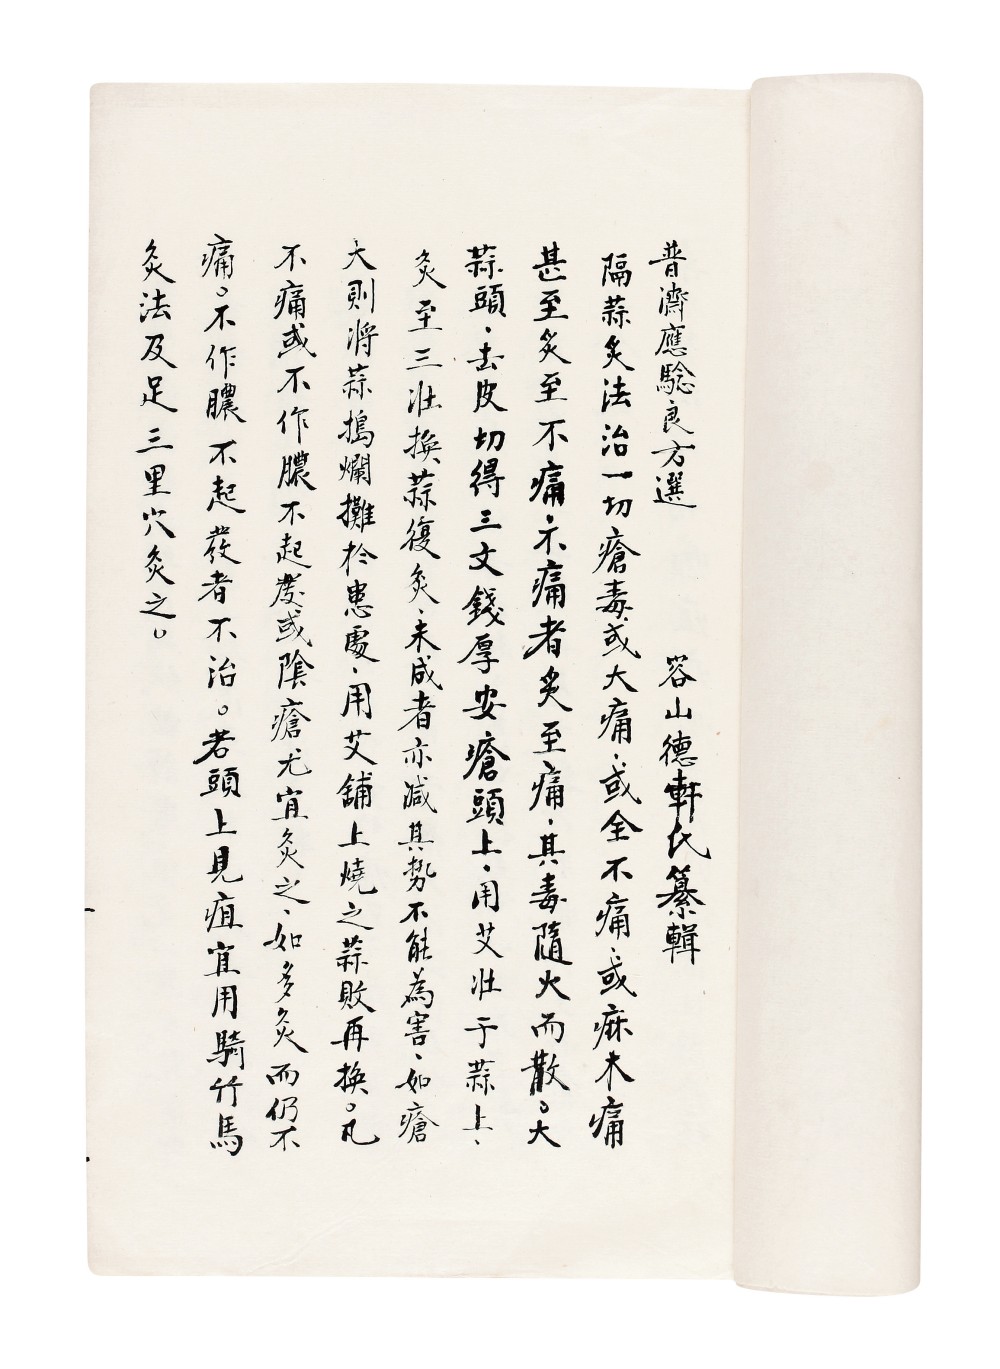 普濟應騐良方選　容山德軒氏纂輯
隔蒜炙法治一切瘡毒或大痛、或全不痛、或痳木痛
甚至炙至不痛、不痛者炙至痛、其毒隨火而散。大
蒜頭、去皮切得三文錢厚安瘡頭上、用艾壯于蒜上、
灸至三壯換蒜復炙、未成者亦減其勢不能為害、如瘡
大則将蒜搗爛攤於患處、用艾舖上燒之蒜敗再換。凡
不痛或不作膿不起發或陰瘡尤宜灸之、如多灸而仍不
痛。不作膿不起發者不治。若頭上見疽宜用騎竹馬
灸法及足三里穴灸之。